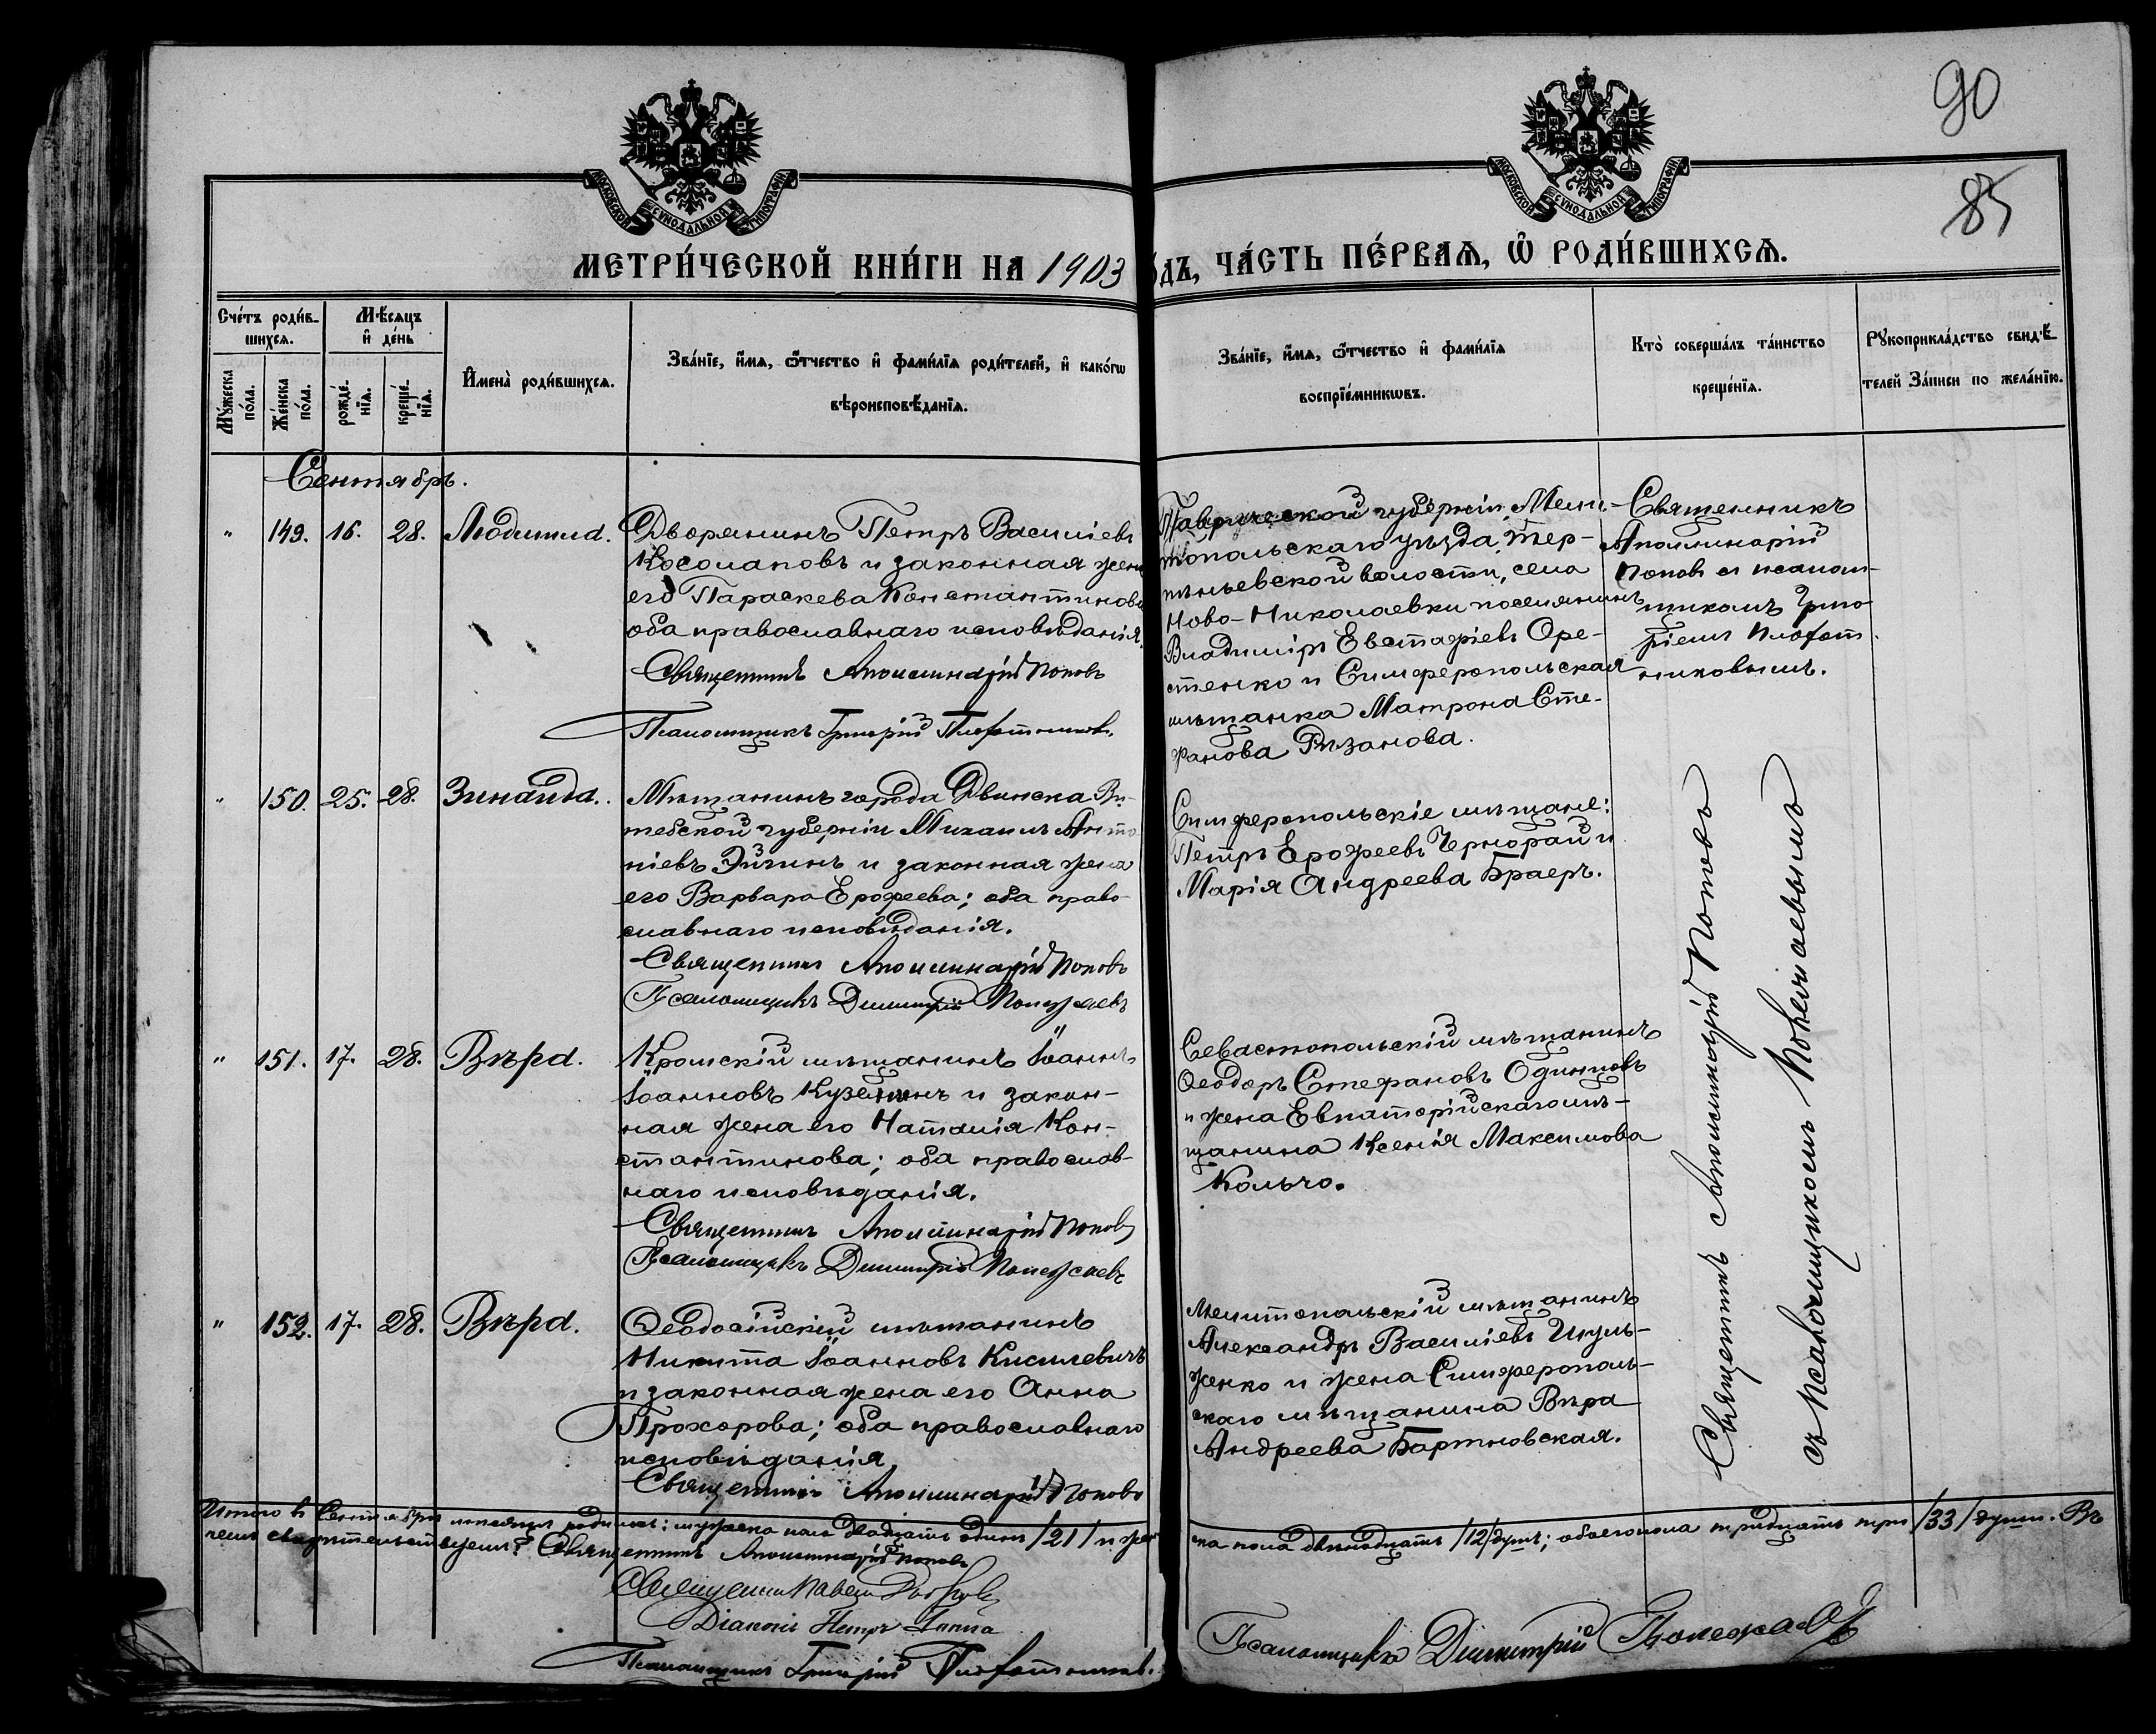 90
85
МОСКОВСКОЙ СѴНОДАЛЬНОЙ ТИПОГРАФІИ
МОСКОВСКОЙ СѴНОДАЛЬНОЙ ТИПОГРАФІИ
МЕТРИ́ЧЕСКОЙ КНИ́ГИ НА 1903
ДЪ, ЧА́СТЬ ПЕ́РВАѦ, Ѡ҆ РОДИ́ВШИХСѦ.
Сче́тъ роди́в-
шихсѧ.
Мѣ́сѧцъ
и҆ де́нь
Мꙋ́жеска по́ла.
Же́нска по́ла.
рожде́-
нїѧ.
креще́-
нїѧ.
И҆мена̀ роди́вшихсѧ.
Зва́нїе, и҆́мѧ, ѻ҆́тчество и҆ фамѝлїѧ роди́телей, и҆ како́гѡ
вѣроисповѣ́данїѧ.
Зва́нїе, и҆́мѧ, ѻ҆́тчество и҆ фамѝлїѧ
воспрїе́мникѡвъ.
Кто̀ соверша́лъ та́инство
креще́нїѧ.
Рꙋкоприкла́дство свидѣ́-
телей за́писи по жела́нїю.
Сентябрь.
" 149. 16. 28. Людмила.
Дворянинъ Петръ Василіевъ
Косолаповъ и законная жена
его Параскева Константинова
оба православнаго исповѣданія.
Священникъ Аполлинарій Поповъ
Псаломщикъ Григорій Плофотниковъ.
Таврической губерніи, Мели-
топольскаго уѣзда, Тер-
пѣньевской волости, села
Ново-Николаевки поселянинъ
Владиміръ Евстафіевъ Оре-
стенко и Симферопольская
мѣщанка Матрона Сте-
фанова Рѣзанова.
Священникъ
Аполлинарій
Поповъ съ псалом-
щикомъ Григо-
ріемъ Плофот-
никовымъ.
" 150. 25. 28. Зинаида.
Мѣщанинъ города Двинска Ви-
тебской губерніи Михаилъ Анто-
ніевъ Эйгинъ и законная жена
его Варвара Ерофеева; оба право-
славнаго исповѣданія.
Священникъ Аполлинарій Поповъ
Псаломщикъ Димитрій Полежаевъ
Симферопольскіе мѣщане:
Петръ Ерофеевъ Чернобай и
Марія Андреева Браеръ.
Священникъ Аполлинарій Поповъ
съ псаломщикомъ Полежаевымъ
" 151. 17. 28. Вѣра.
Кромскій мѣщанинъ Іоаннъ
Іоанновъ и закон-
ная жена его Наталія Кон-
стантинова; оба православ-
наго исповѣданія.
Священникъ Аполлинарій Поповъ
Псаломщикъ Димитрій Полежаевъ
Севастопольскій мѣщанинъ
Ѳеодоръ Стефановъ Одинцовъ
и жена Евпаторійскаго мѣ-
щанина Ксенія Максимова
Кольчо.
" 152. 17. 28. Вѣра.
Ѳеодосійскій мѣщанинъ
Никита Іоанновъ Кисилевичъ
и законная жена его Анна
Прохорова; оба православнаго
исповѣданія.
Священникъ Аполлинарій Поповъ
Мелитопольскій мѣщанинъ
Александръ Василіевъ Шуль-
женко и жена Симферополь-
скаго мѣщанина Вѣра
Андреева Бартновская.
Итого въ Сентябрѣ мѣсяцѣ родилось: мужеска пола двадцать одинъ /21/ и жен
ска пола двѣнадцать /12/ душъ; обоего пола тридцать три /33/ души. Въ
чемъ свидѣтельствуемъ: Священникъ Аполлинарій Поповъ
Священникъ Павелъ
Діаконъ Петръ
Псаломщикъ Григорій Плофотниковъ.
Псаломщикъ Димитрій Полежаевъ